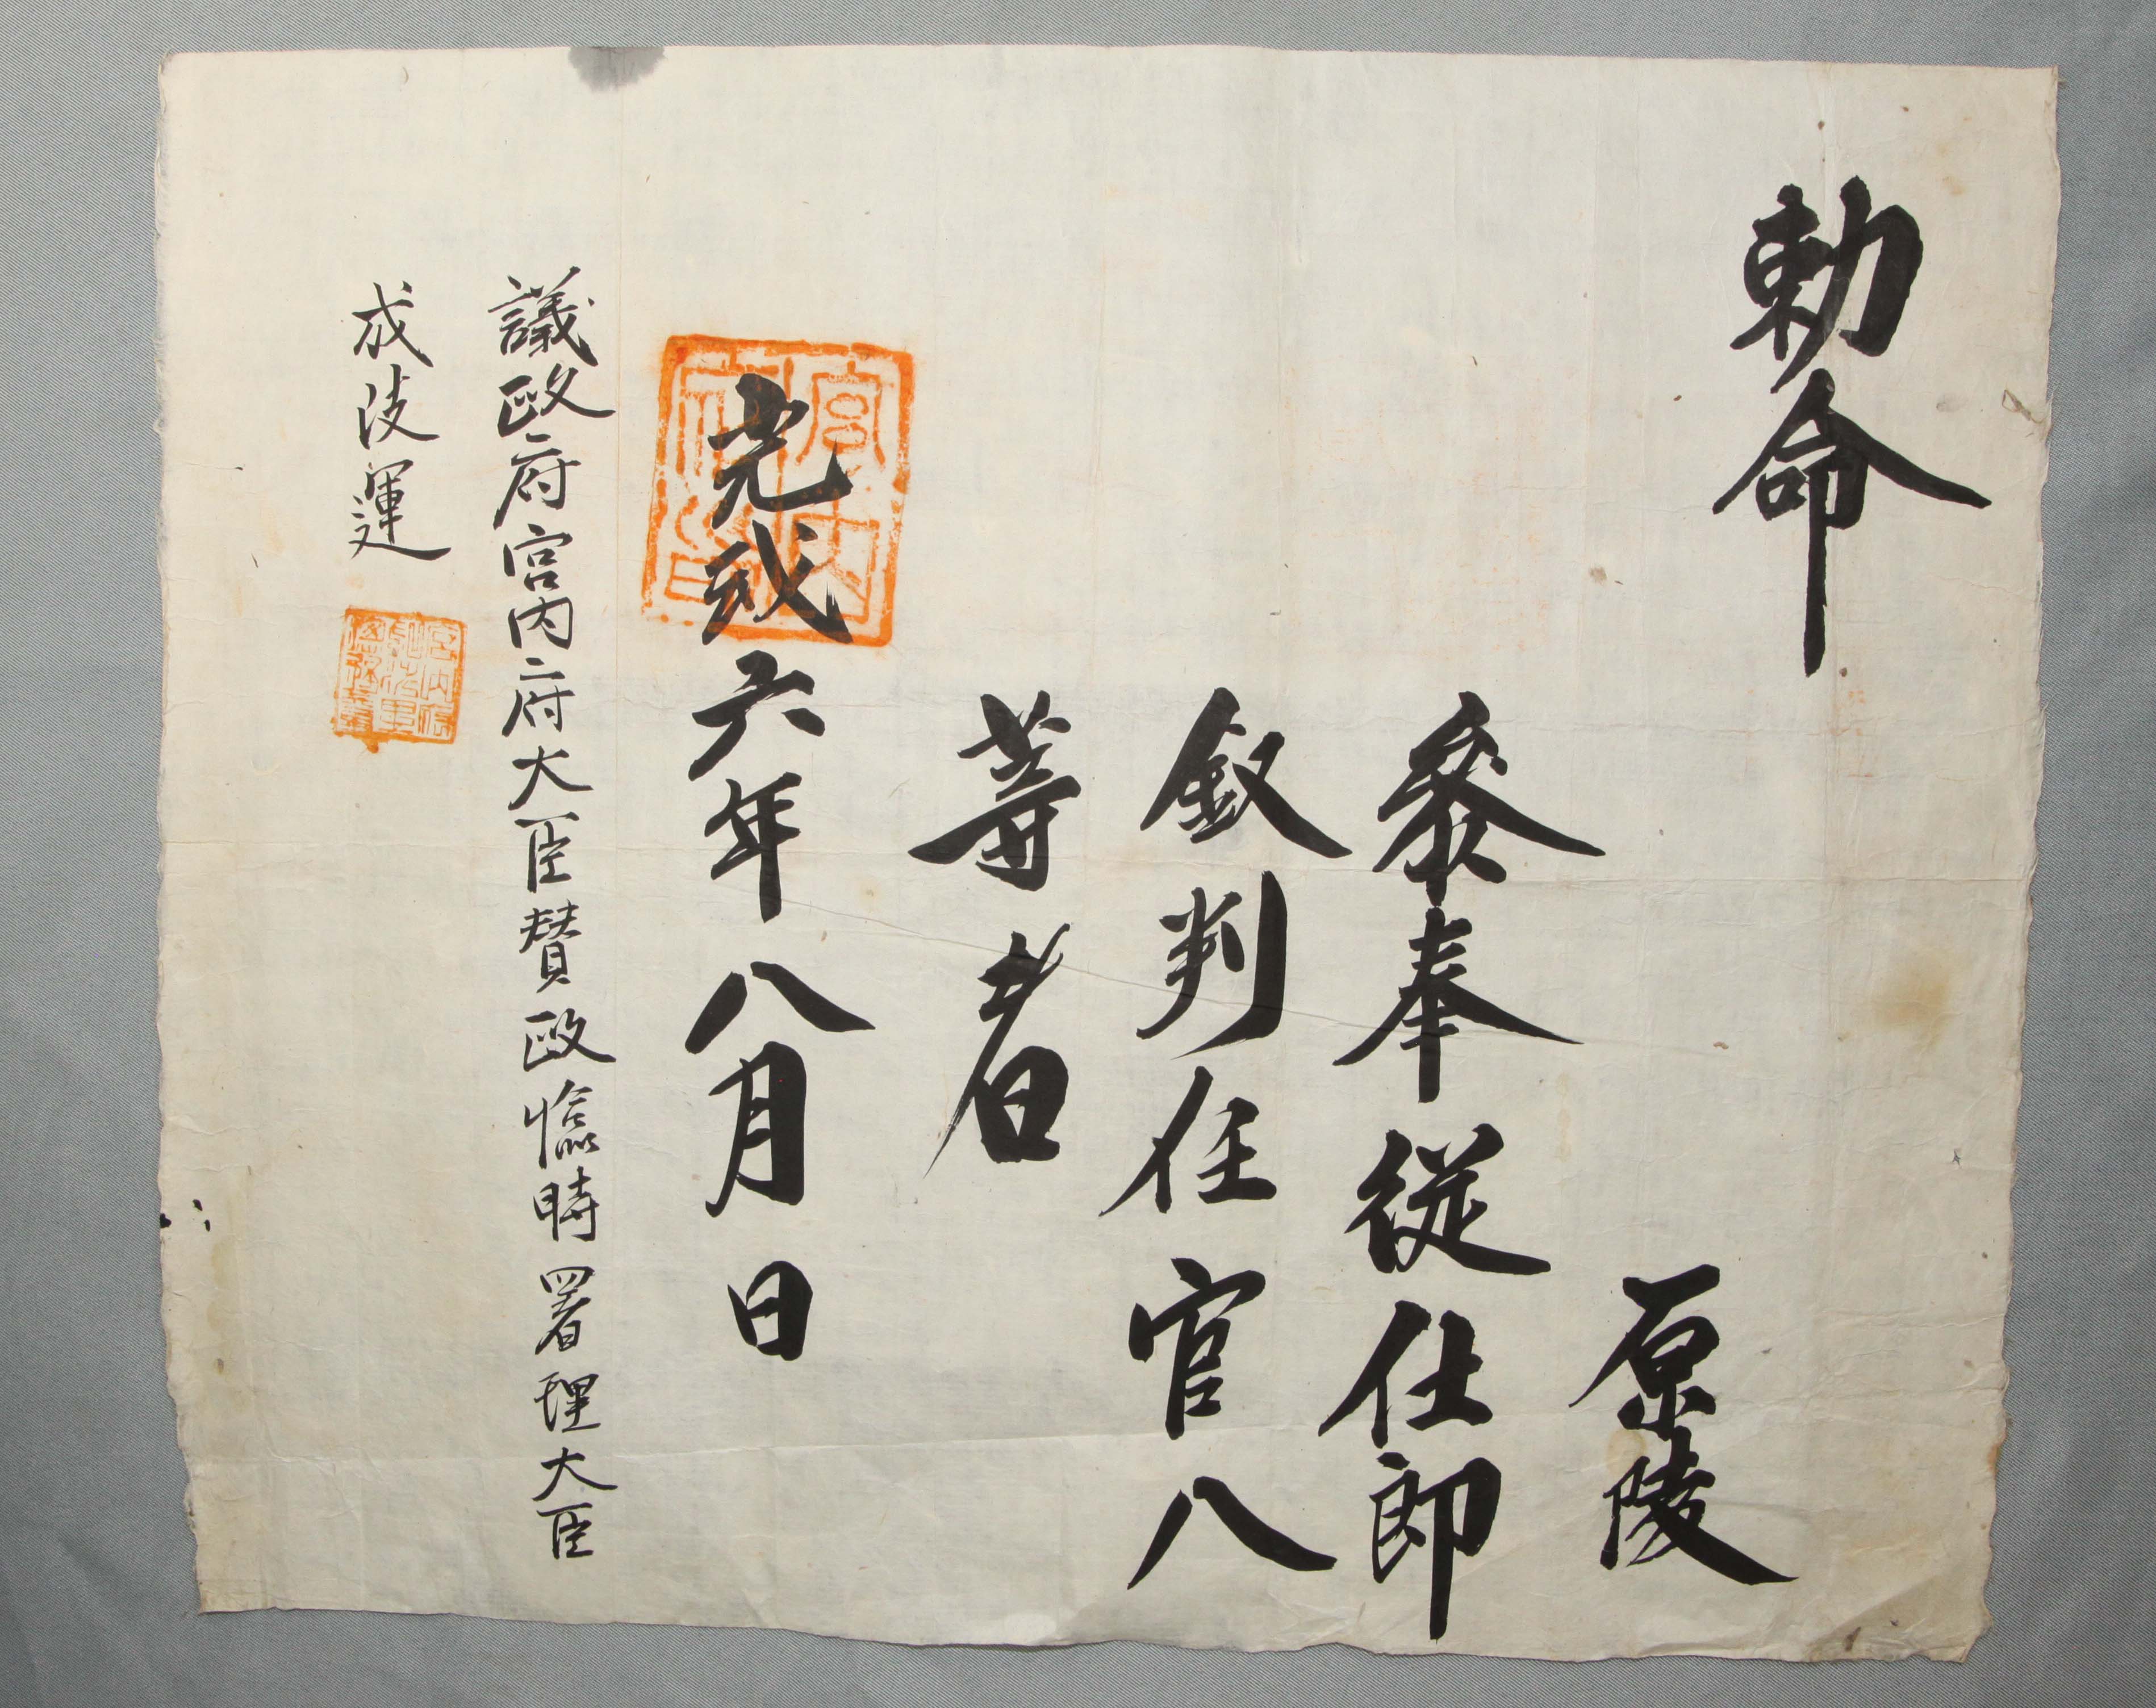 勅命
原陵
參奉從仕郎
敍判任官八
等者
光武六年八月 日
議政府宮內府大臣贊政臨時署理大臣
成岐運
宮內府印